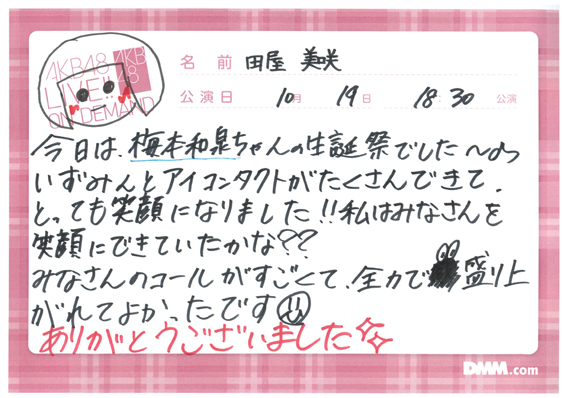 AKB48
LIVE!!
ON DEMAND
AKB
48
名前 田屋 美咲
公演日 10月 19日 18:30 公演
今日は、梅本和泉ちゃんの生誕祭でした〜
いずみんとアイコンタクトがたくさんできて、
とっても笑顔になりました!!私はみなさんを
笑顔にできていたかな??
みなさんのコールがすごくて、全力で盛り上
がれてよかったです
ありがとうございました
DMM.com